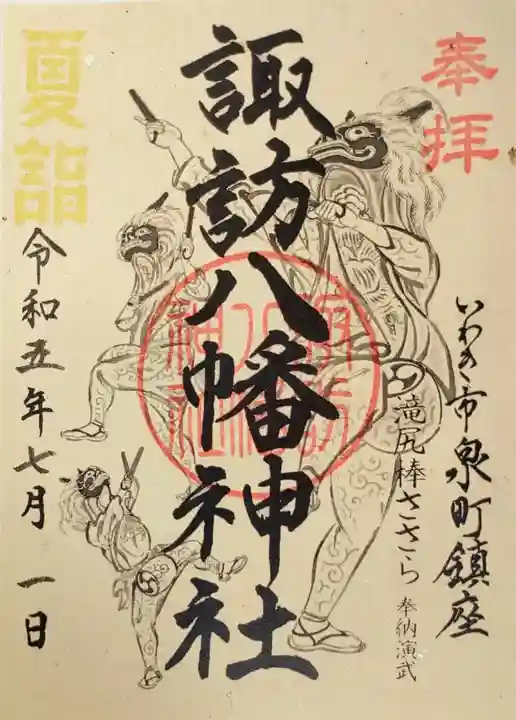 奉拝
いわき市泉町鎮座
滝尻棒ささら 奉納演武
諏訪八幡神社
諏訪八幡神社
夏詣
令和五年七月一日